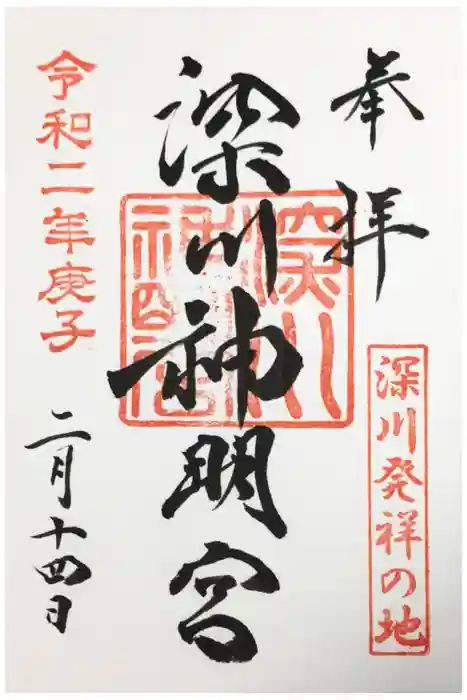 奉拝
深川発祥の地
深川神明宮
深川神明宮
令和二年庚子
二月十四日